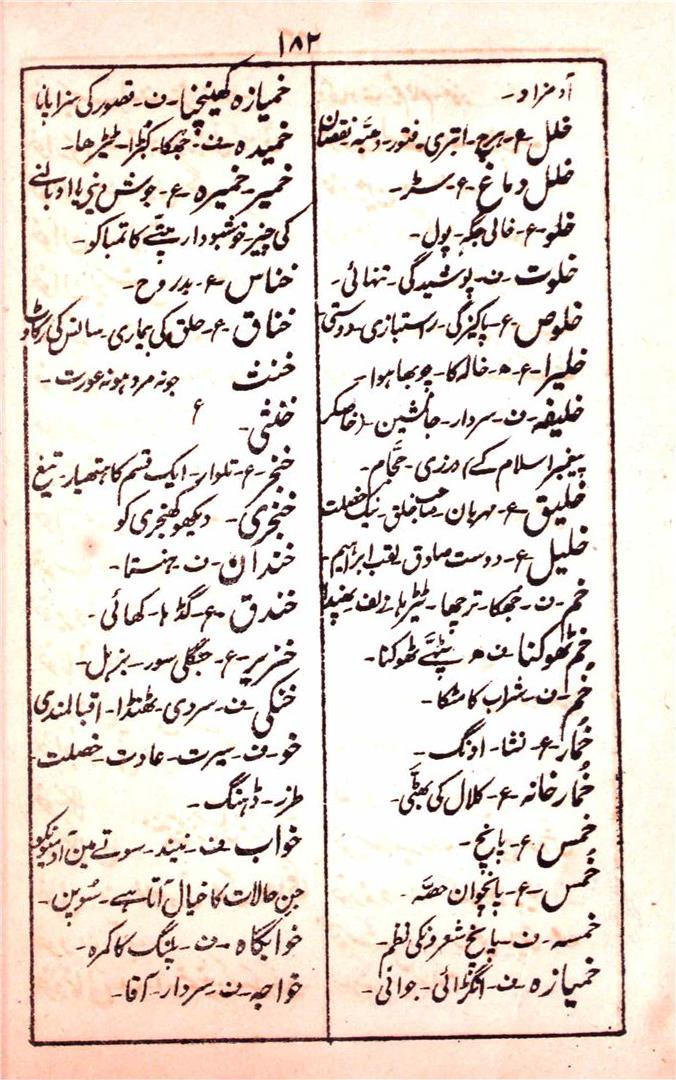 ۱۸۲
آدمزاد۔
خلل۔ع۔ہرج۔ابتری۔فتور۔دھبّہ۔نقصان
خلل دماغ۔ع۔سڑ۔
خلو۔ع۔خالی جگہ۔پول۔
خلوت۔ف۔پوشیدگی۔تنہائی۔
خلوص۔ع۔پاکیزگی۔راستبازی۔دوستی
خلیرا۔ع۔ھ۔خالہ کا۔چوبھا ہوا۔
خلیفہ۔ف۔سردار۔جانشین۔(خاصکر
پیغمبر اسلام کے) درزی۔حجّام۔
خلیق۔ع۔مہربان۔صاحب خلق۔نیک خصلت
خلیل۔ع۔دوست صادق۔لقب ابراہیم۔
خم۔ف۔جھکا۔ترچھا۔ٹیڑہا۔زلف۔پھندا
خم ٹھوکنا۔ف ھ۔پٹھے ٹھوکنا۔
خُم۔ف۔شراب کا مٹکا۔
خُمار۔ع۔نشا۔اونگ۔
خُمارخانہ۔ع۔کلال کی بھٹّی۔
خمس۔ع۔پانچ۔
خُمس۔ع۔پانچوان حصّہ۔
خمسہ۔ف۔پانچ شعرونکی نظم۔
خمیازہ۔ف۔انگڑائی۔جوانی۔
خمیازہ کھینچنا۔ف۔قصور کی سزا پانا
خمیدہ۔ف۔جُھکا۔کبڑا۔ٹیڑھا۔
خمیر۔خمیرہ۔ع۔جوش دینی یا اوبالنے
کی چیز۔خوشبودار پینے کا تمباکو۔
خناس۔ع۔بدروح۔
خناق۔ع۔حلق کی بیماری۔سانس کی رکاوٹ
خنث جو نہ مرد ہو نہ عورت۔
خنثی۔ ع
خنجر۔ع۔تلوار۔ایک قسم کا ہتھیار۔تیغ
خنجری۔دیکھو کھنجری کو
خندان۔ف۔ہنستا۔
خندق۔ع۔گڈہا۔کھائی۔
خنزیر۔ع۔جنگلی سور۔بزہل۔
خنکی۔ف۔سردی۔ٹھنڈا۔اقبالمندی
خو۔ف۔سیرت۔عادت۔خصلت۔
طرز۔ڈہنگ۔
خواب۔ف۔نیند۔سوتے مین آدمیونکو
جن حالات کا خیال آتا ہے۔سُوپن۔
خوابگاہ۔ف۔پلنگ کا کمرہ۔
خواجہ۔ف۔سردار۔آقا۔